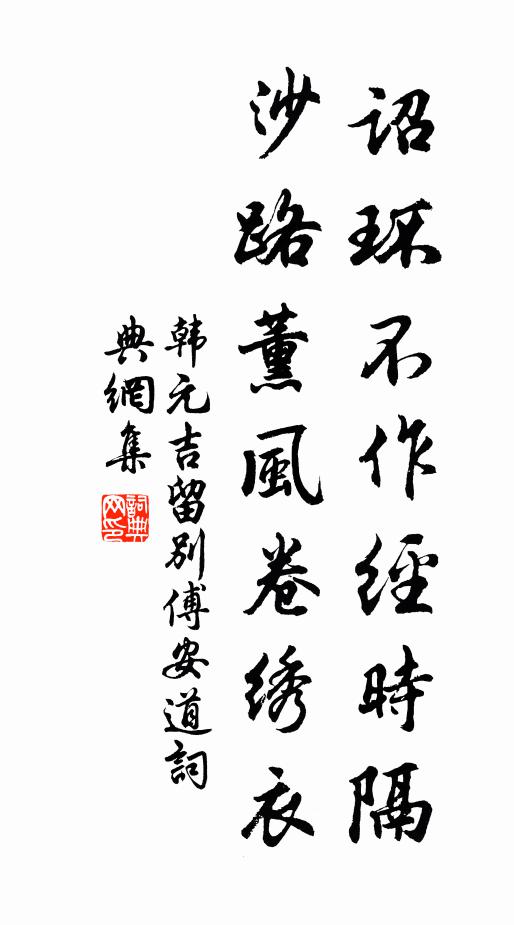 詔环不作經時隔
沙路薰風卷绣衣
韩元吉留别傅安道詞
典網集
詞典
网印